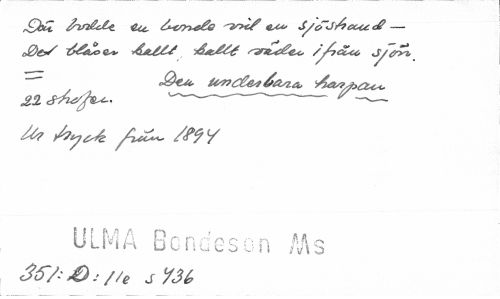 Där bodde en bonde vid en sjöstrand –
Det blåser kallt, kallt väder ifrån sjön.
=
Den underbara harpan
22 strofer.
Ur tryck från 1894
ULMA Bondeson Ms
351: D: 11e s 436